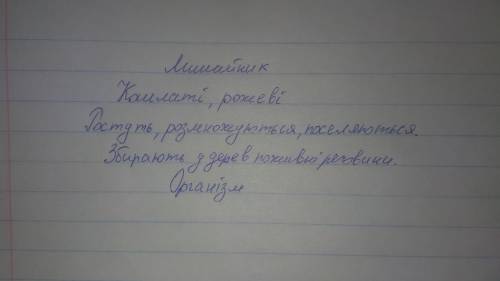 Лишайник
Кошлаті, рожеві
Ростуть, розмножуються, поселяються.
Збирають з дерев поживні речовини.
Організм